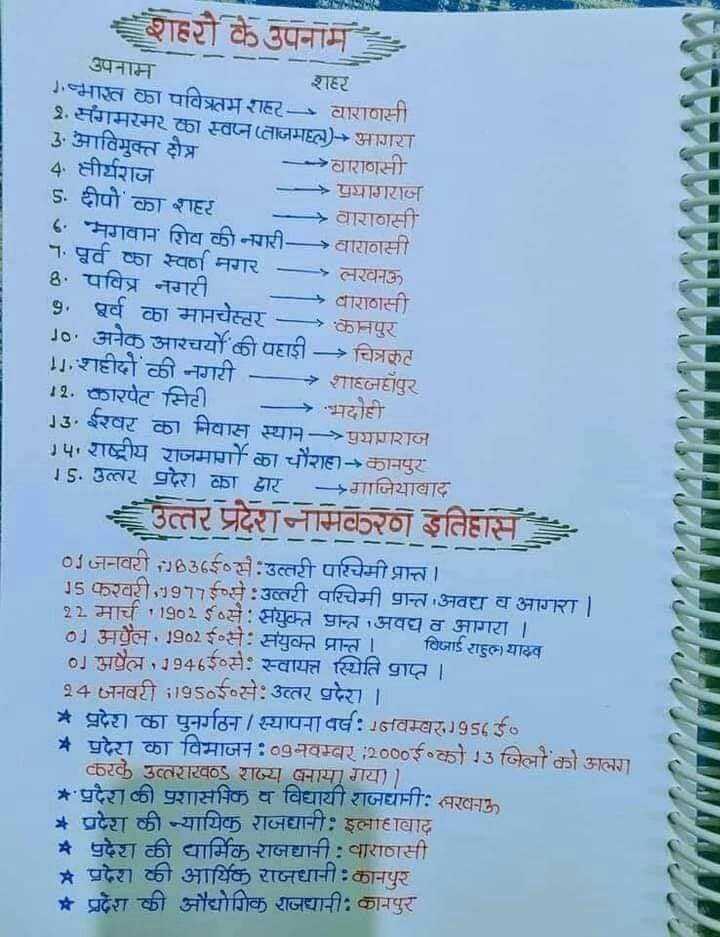 शहरों के उपनाम
उपनाम शहर
1. भारत का पवित्रतम शहर → वाराणसी
2. संगमरमर का स्वप्न (ताजमहल) → आगरा
3. आविमुक्त क्षेत्र → वाराणसी
4. तीर्यराज → प्रयागराज
5. दीपों का शहर → वाराणसी
6. भगवान शिव की नगरी → वाराणसी
7. पूर्व का स्वर्ण नगर → लखनऊ
8. पवित्र नगरी → वाराणसी
9. पूर्व का मानचेस्टर → कानपुर
10. अनेक आश्चर्यों की पहाड़ी → चित्रकूट
11. शहीदों की नगरी → शाहजहाँपुर
12. कारपेट सिटी → भदोही
13. ईश्वर का निवास स्थान → प्रयागराज
14. राष्ट्रीय राजमार्गों का चौराहा → कानपुर
15. उत्तर प्रदेश का द्वार → गाजियाबाद
उत्तर प्रदेश नामकरण इतिहास
01 जनवरी, 1836ई० से: उत्तरी पश्चिमी प्रान्त।
15 फरवरी, 1977ई० से: उत्तरी पश्चिमी प्रान्त, अवध व आगरा।
22 मार्च, 1902 ई० से: संयुक्त प्रान्त, अवध व आगरा।
01 अप्रैल, 1902 ई० से: संयुक्त प्रान्त। विजार्ड राहुल यादव
01 अप्रैल, 1946ई० से: स्वायत्त स्थिति प्राप्त।
24 जनवरी, 1950ई० से: उत्तर प्रदेश।
★ प्रदेश का पुनर्गठन / स्थापना वर्ष: 1 नवम्बर, 1956 ई०
★ प्रदेश का विभाजन: 09 नवम्बर, 2000ई० को 13 जिलों को अलग
करके उत्तराखण्ड राज्य बनाया गया।
★ प्रदेश की प्रशासनिक व विधायी राजधानी: लखनऊ
★ प्रदेश की न्यायिक राजधानी: इलाहाबाद
★ प्रदेश की धार्मिक राजधानी: वाराणसी
★ प्रदेश की आर्थिक राजधानी: कानपुर
★ प्रदेश की औधोगिक राजधानी: कानपुर